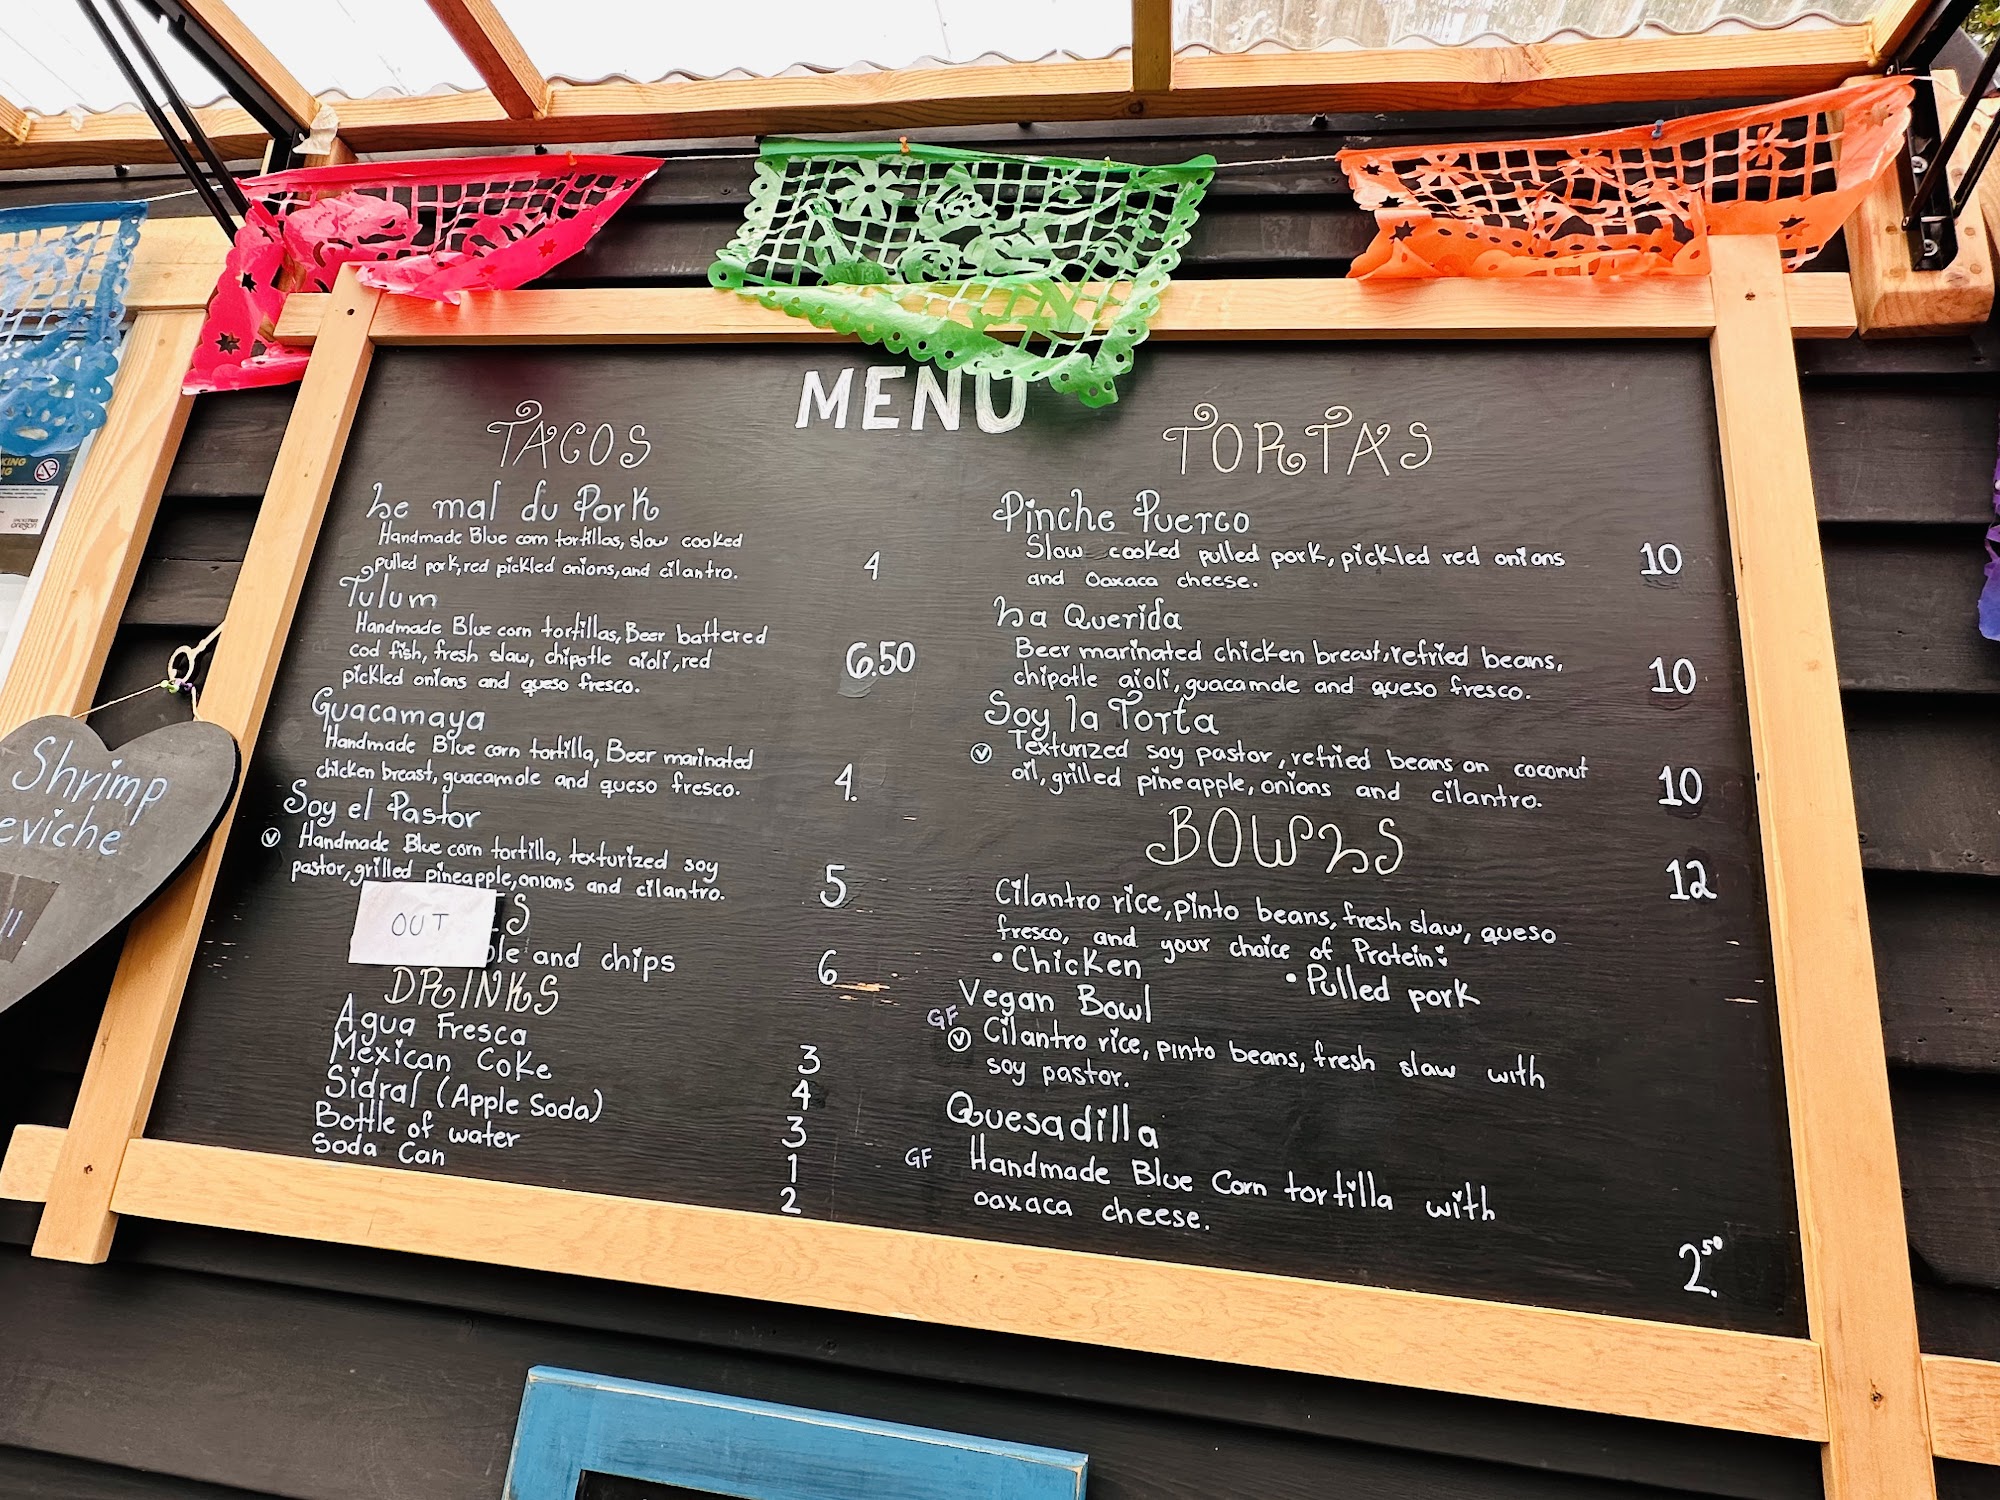 MENU
TACOS
Le mal du Pork
Handmade Blue corn tortillas, slow cooked
pulled pork, red pickled onions, and cilantro.
4
Tulum
Handmade Blue corn tortillas, Beer battered
cod fish, fresh slaw, chipotle aioli, red
pickled onions and queso fresco.
6.50
Guacamaya
Handmade Blue corn tortilla, Beer marinated
chicken breast, guacamole and queso fresco.
4.
Soy el Pastor
V Handmade Blue corn tortilla, texturized soy
pastor, grilled pineapple, onions and cilantro.
5
OUT
and chips
6
DRINKS
Agua Fresca
3
Mexican Coke
4
Sidral (Apple Soda)
3
Bottle of water
1
Soda Can
2
TORTAS
Pinche Puerco
Slow cooked pulled pork, pickled red onions
and Oaxaca cheese.
10
La Querida
Beer marinated chicken breast, refried beans,
chipotle aioli, guacamole and queso fresco.
10
Soy la Torta
V Texturized soy pastor, refried beans on coconut
oil, grilled pineapple, onions and cilantro.
10
BOWLS
12
Cilantro rice, pinto beans, fresh slaw, queso
fresco, and your choice of Protein:
• Chicken
• Pulled pork
Vegan Bowl
GF
V Cilantro rice, pinto beans, fresh slaw with
soy pastor.
Quesadilla
GF Handmade Blue Corn tortilla with
oaxaca cheese.
2.50
Shrimp
eviche
11.
KING
oregon